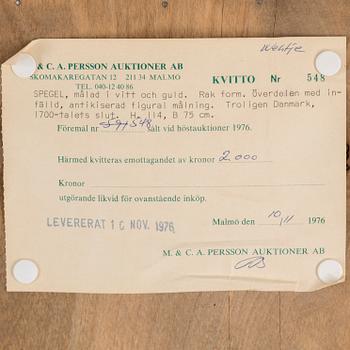 Wehtje
& C. A. PERSSON AUKTIONER AB
SKOMAKAREGATAN 12 211 34 MALMÖ
TEL. 040-12 40 86
KVITTO Nr 548
SPEGEL, målad i vitt och guld. Rak form. Överdelen med in-
fälld, antikiserad figural målning. Troligen Danmark,
1700-talets slut. H. 114, B 75 cm.
Föremål nr 548 sålt vid höstauktioner 1976.
Härmed kvitteras emottagandet av kronor 2.000
Kronor
utgörande likvid för ovanstående inköp.
LEVERERAT 10 NOV. 1976
Malmö den 10/11 1976
M. & C. A. PERSSON AUKTIONER AB